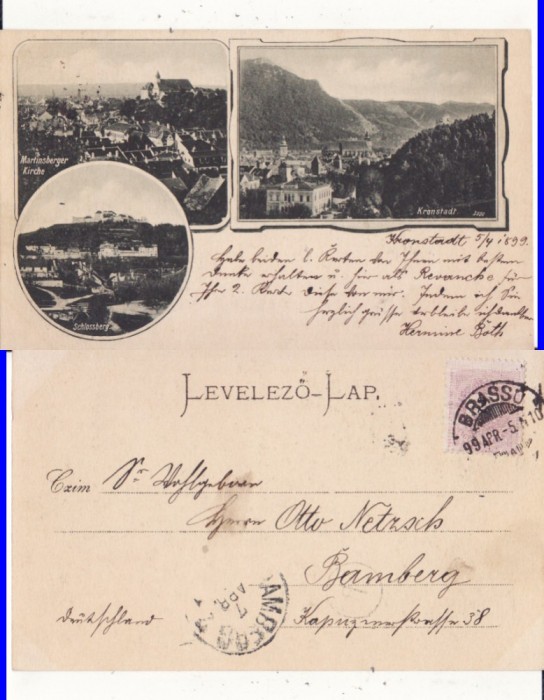 Martinsberger
Kirche
Kronstadt
Schlossberg
Kronstadt 5/4 1899.
Habe beiden l. Karten von Ihnen mit bestem
Dank erhalten u. hier als Revanche für
Ihre 2. Karte diese von mir. Indem ich Sie
herzlich grüsse verbleibe ich dankbar
Hermine Both
LEVELEZŐ-LAP.
BRASSÓ
99 APR.-5. N10
Czim Sr. Wohlgeboren
Herrn Otto Netzsch
Bamberg
Kapuzinerstrasse 38
Deutschland
BAMBERG
7
APR.